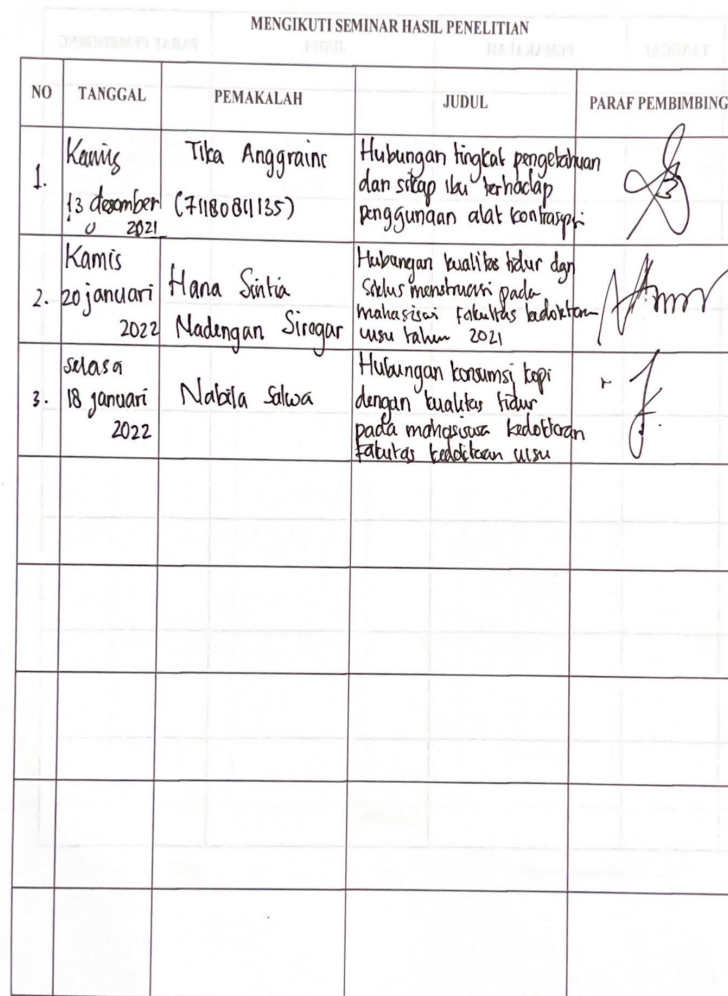 MENGIKUTI SEMINAR HASIL PENELITIAN
NO TANGGAL PEMAKALAH JUDUL PARAF PEMBIMBING
1. Kamis 13 desember 2021 Tika Anggraini (71180811135) Hubungan tingkat pengetahuan
dan sikap ibu terhadap
penggunaan alat kontrasepsi
2. Kamis
20 januari
2022
Hana Sintia
Nadengan Siregar
Hubungan kualitas tidur dgn
Siklus menstruasi pada
mahasiswi Fakultas kedokteran
uisu tahun 2021
3. Selasa
18 januari
2022
Nabila Salwa
Hubungan konsumsi kopi
dengan kualitas tidur
pada mahasiswa kedokteran
Fakultas kedokteran uisu